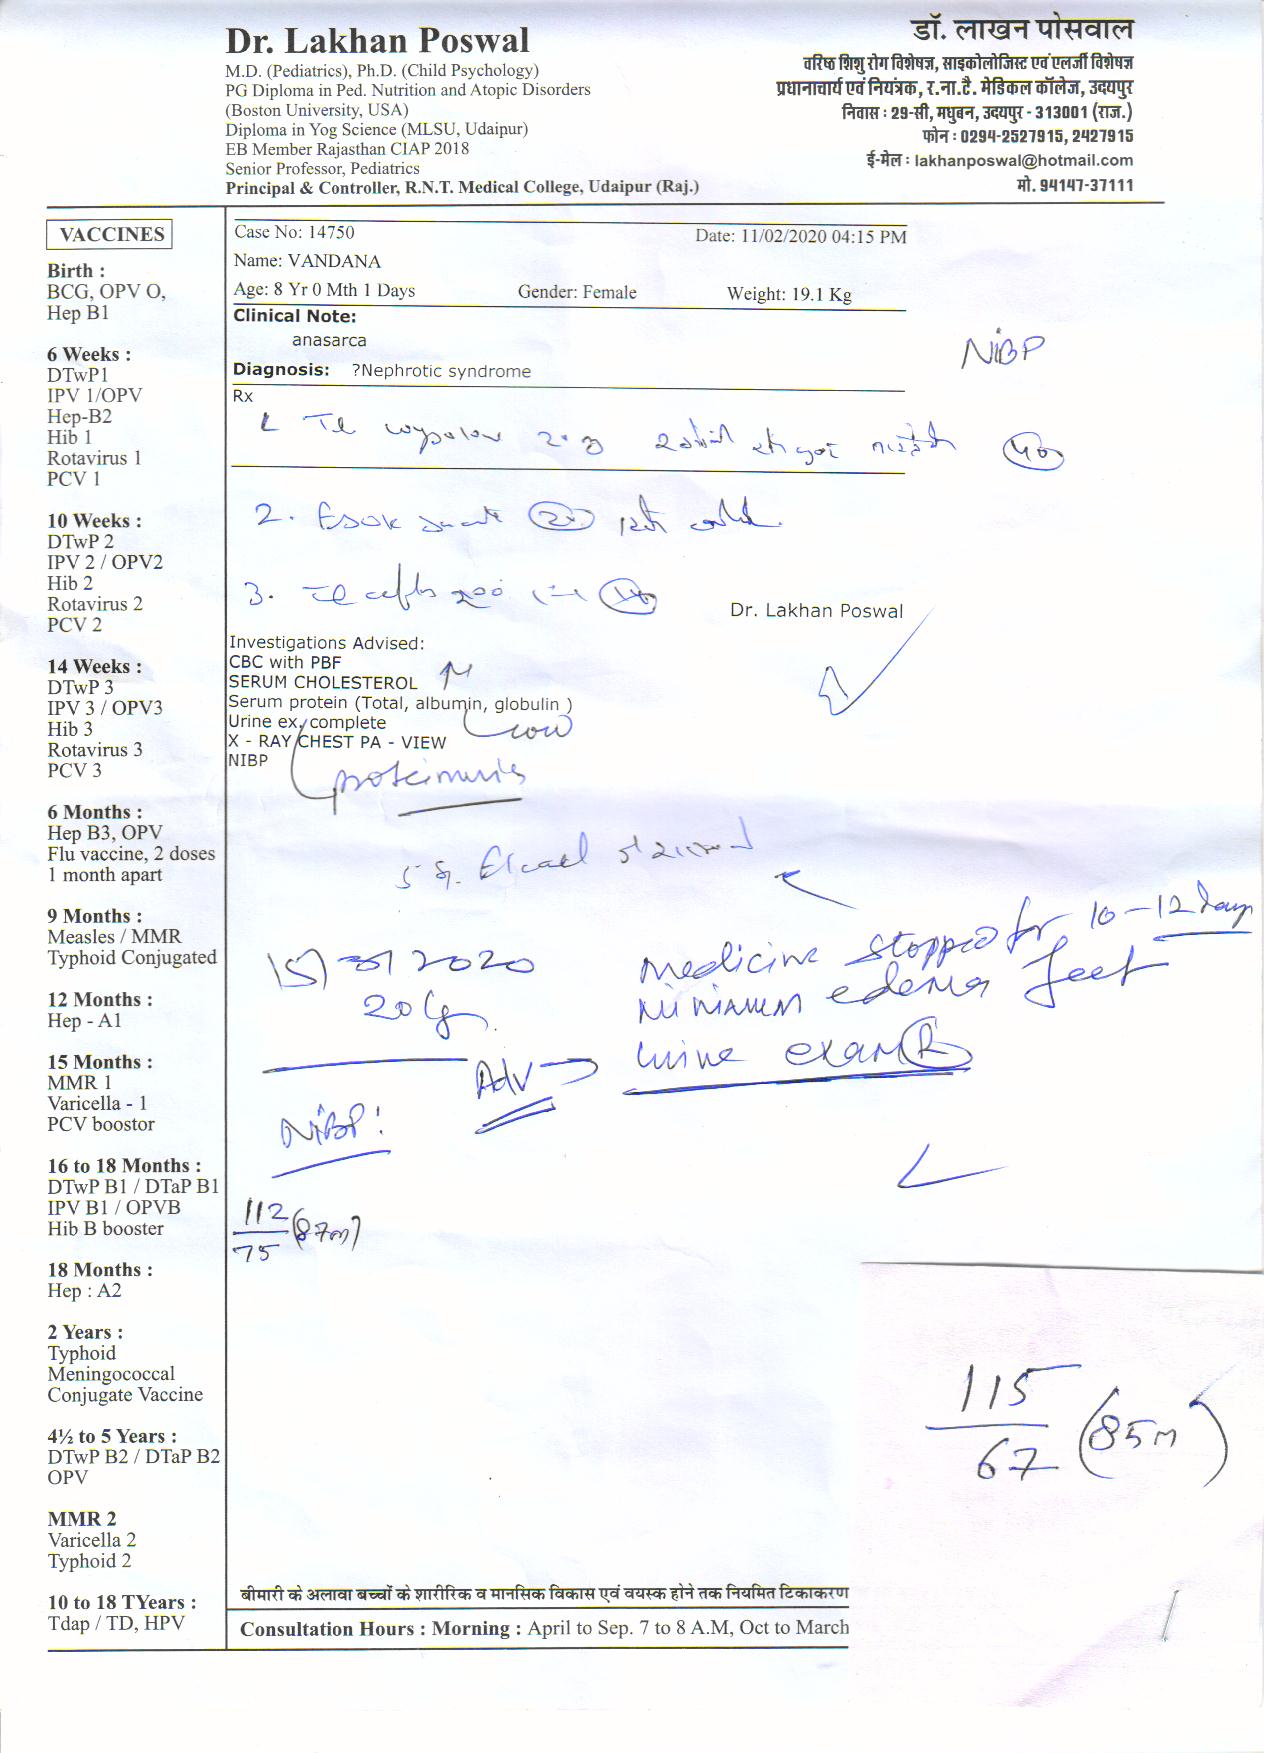 Dr. Lakhan Poswal
M.D. (Pediatrics), Ph.D. (Child Psychology)
PG Diploma in Ped. Nutrition and Atopic Disorders
(Boston University, USA)
Diploma in Yog Science (MLSU, Udaipur)
EB Member Rajasthan CIAP 2018
Senior Professor, Pediatrics
Principal & Controller, R.N.T. Medical College, Udaipur (Raj.)
डॉ. लाखन पोसवाल
वरिष्ठ शिशु रोग विशेषज्ञ, साइकोलोजिस्ट एवं एलर्जी विशेषज्ञ
प्रधानाचार्य एवं नियंत्रक, र.ना.टै. मेडिकल कॉलेज, उदयपुर
निवास : 29-सी, मधुबन, उदयपुर - 313001 (राज.)
फोन : 0294-2527915, 2427915
ई-मेल : lakhanposwal@hotmail.com
मो. 94147-37111
VACCINES
Birth :
BCG, OPV O,
Hep B1
6 Weeks :
DTwP1
IPV 1/OPV
Hep-B2
Hib 1
Rotavirus 1
PCV 1
10 Weeks :
DTwP 2
IPV 2 / OPV2
Hib 2
Rotavirus 2
PCV 2
14 Weeks :
DTwP 3
IPV 3 / OPV3
Hib 3
Rotavirus 3
PCV 3
6 Months :
Hep B3, OPV
Flu vaccine, 2 doses
1 month apart
9 Months :
Measles / MMR
Typhoid Conjugated
12 Months :
Hep - A1
15 Months :
MMR 1
Varicella - 1
PCV boostor
16 to 18 Months :
DTwP B1 / DTaP B1
IPV B1 / OPVB
Hib B booster
18 Months :
Hep : A2
2 Years :
Typhoid
Meningococcal
Conjugate Vaccine
4½ to 5 Years :
DTwP B2 / DTaP B2
OPV
MMR 2
Varicella 2
Typhoid 2
10 to 18 TYears :
Tdap / TD, HPV
Case No: 14750 Date: 11/02/2020 04:15 PM
Name: VANDANA
Age: 8 Yr 0 Mth 1 Days Gender: Female Weight: 19.1 Kg
Clinical Note:
anasarca
NIBP
Diagnosis: ?Nephrotic syndrome
Rx
2.
3. 200
Dr. Lakhan Poswal
Investigations Advised:
CBC with PBF
SERUM CHOLESTEROL
Serum protein (Total, albumin, globulin )
Urine ex. complete low
X - RAY CHEST PA - VIEW
NIBP
proteinuria
Medicine stopped for 10-12 days
2020 Minimum edema feet
20 kg
Adv → urine exam
NIBP:
112/75 (87m)
115/67 (85m)
बीमारी के अलावा बच्चों के शारीरिक व मानसिक विकास एवं वयस्क होने तक नियमित टिकाकरण
Consultation Hours : Morning : April to Sep. 7 to 8 A.M, Oct to March